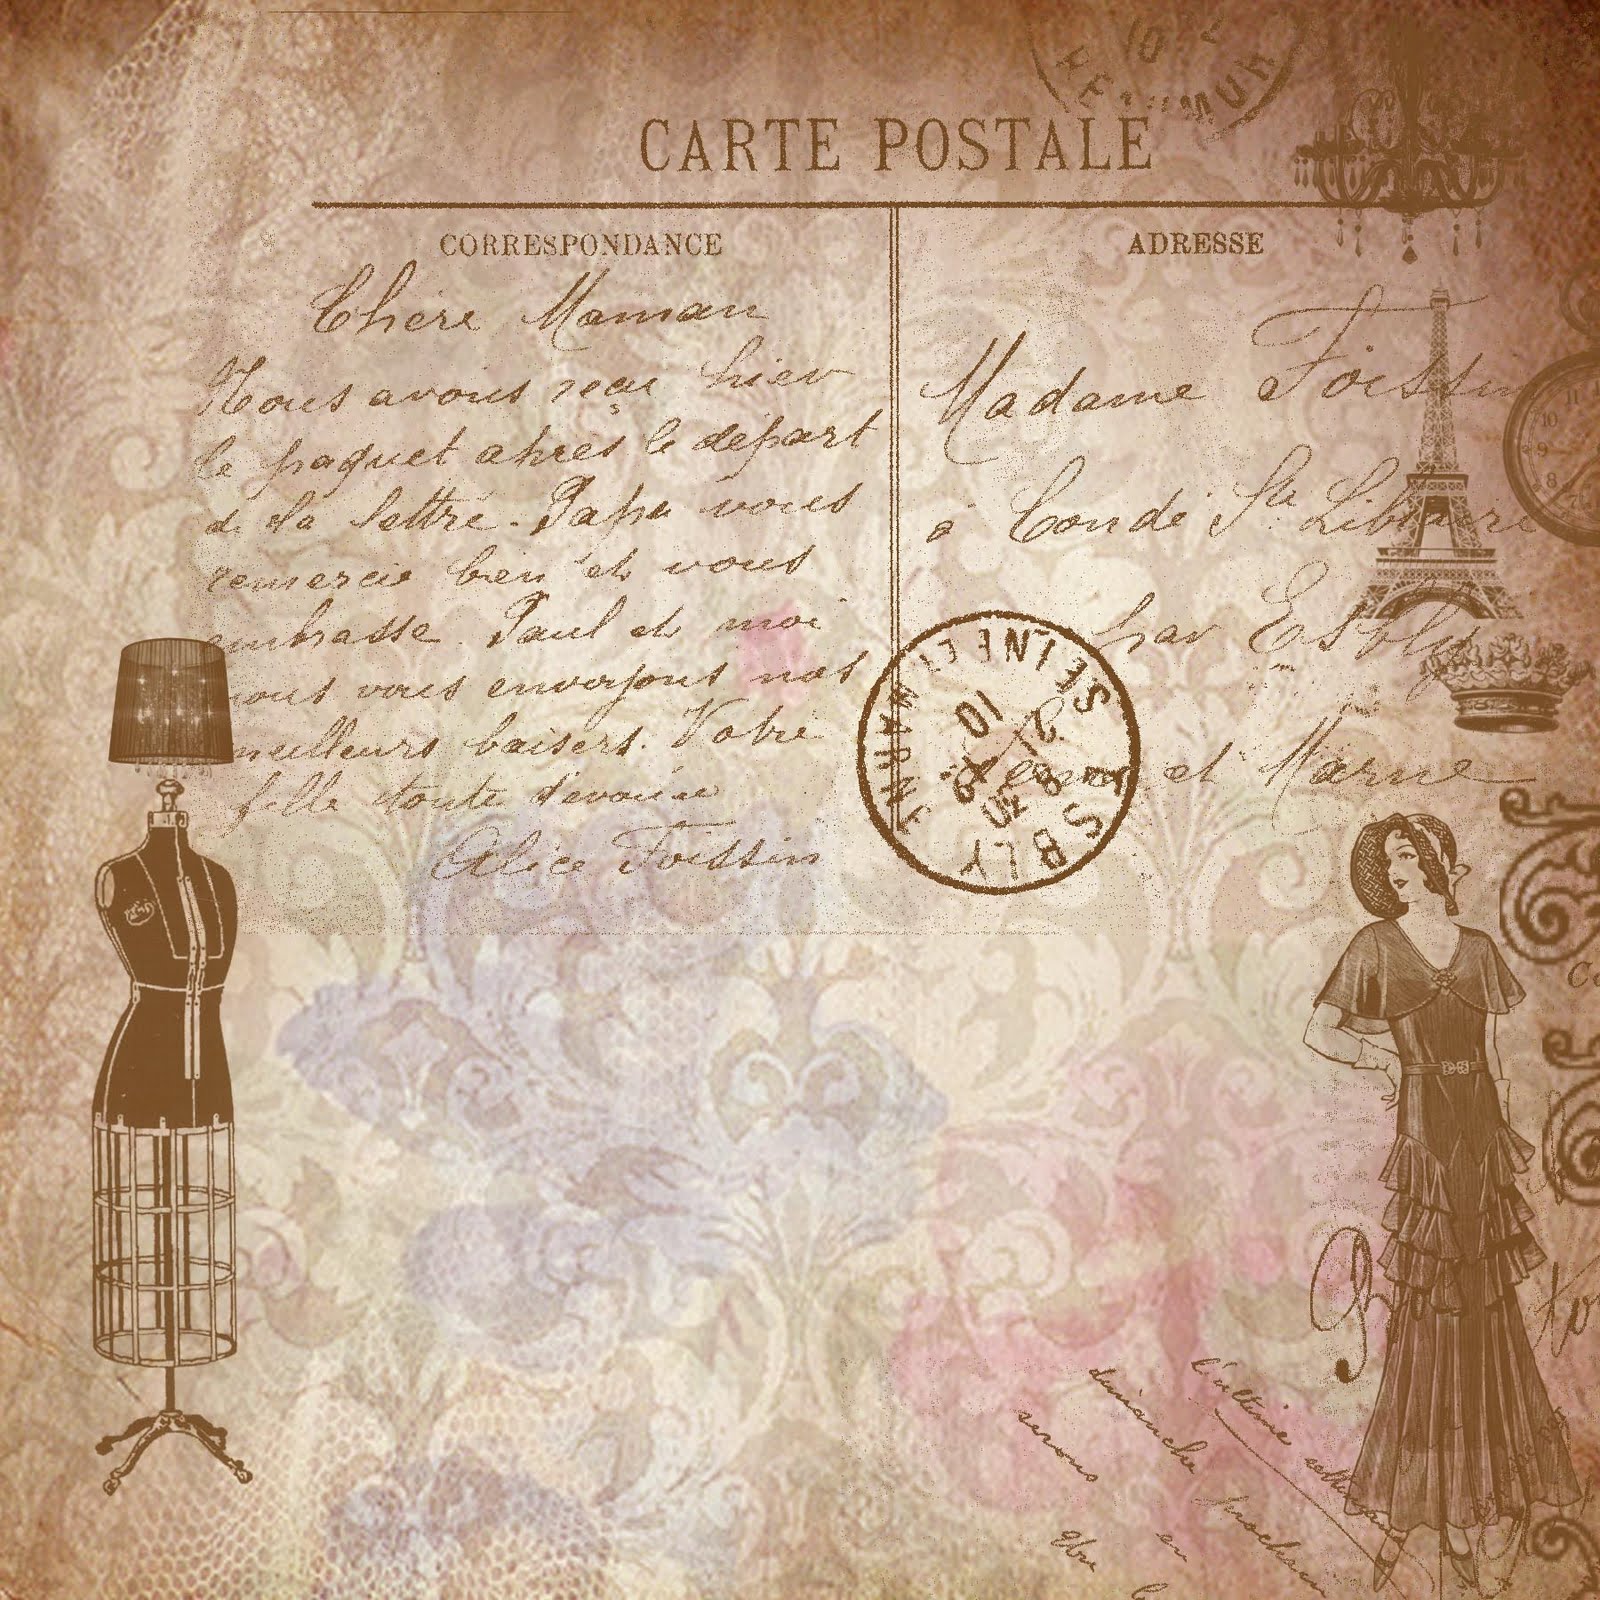 CARTE POSTALE
CORRESPONDANCE
Chère Maman
Nous avons reçu hier
le paquet après le départ
de la lettre. Papa vous
remercie bien et vous
embrasse. Paul et moi
nous vous envoyons nos
meilleurs baisers. Votre
fille toute dévouée
Alice Foissin
ADRESSE
Madame Foissin
à Condé Ste Libiaire
par Esbly
Seine et Marne
ESBLY
SEINE ET MARNE
10
21
10
11
9
8
7
l'ultime
dimanche prochain
serons en